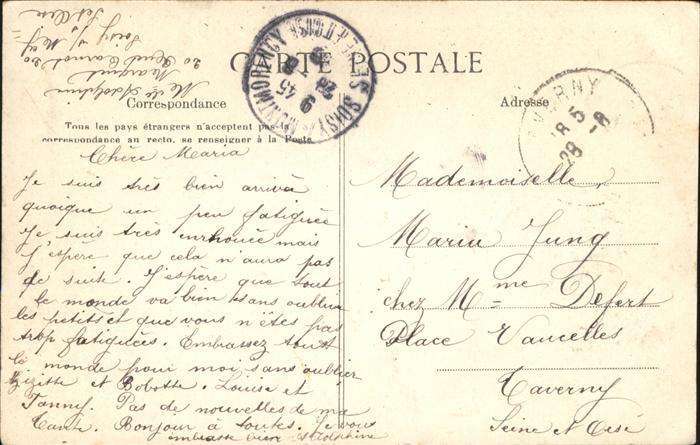 CARTE POSTALE
Correspondance
Tous les pays étrangers n'acceptent pas la
correspondance au recto, se renseigner à la Poste
Chère Maria
Je suis très bien arrivée
quoique un peu fatiguée
Je suis très enrhouée mais
J'espère que cela n'aura pas
de suite. J'espère que tout
le monde va bien sans oublier
les petits et que vous n'êtes pas
trop fatiguées. Embrassez tout
le monde pour moi sans oublier
et Bobotte. Louise et
Fanny. Pas de nouvelles de ma
Tante. Bonjour à toutes. Je vous
embrasse bien Adolphine
Melle Adolphine
Marquet
20 Rue Carnot 20
Soisy s/s
Adresse
Mademoiselle,
Maria Jung
chez Mme Defert
Place Vaucelles
Taverny
Seine et Oise
TAVERNY
18 15
28 -8
SOISY-SOUS-MONTMORENCY
9 45
28 8
SEINE-ET-OISE